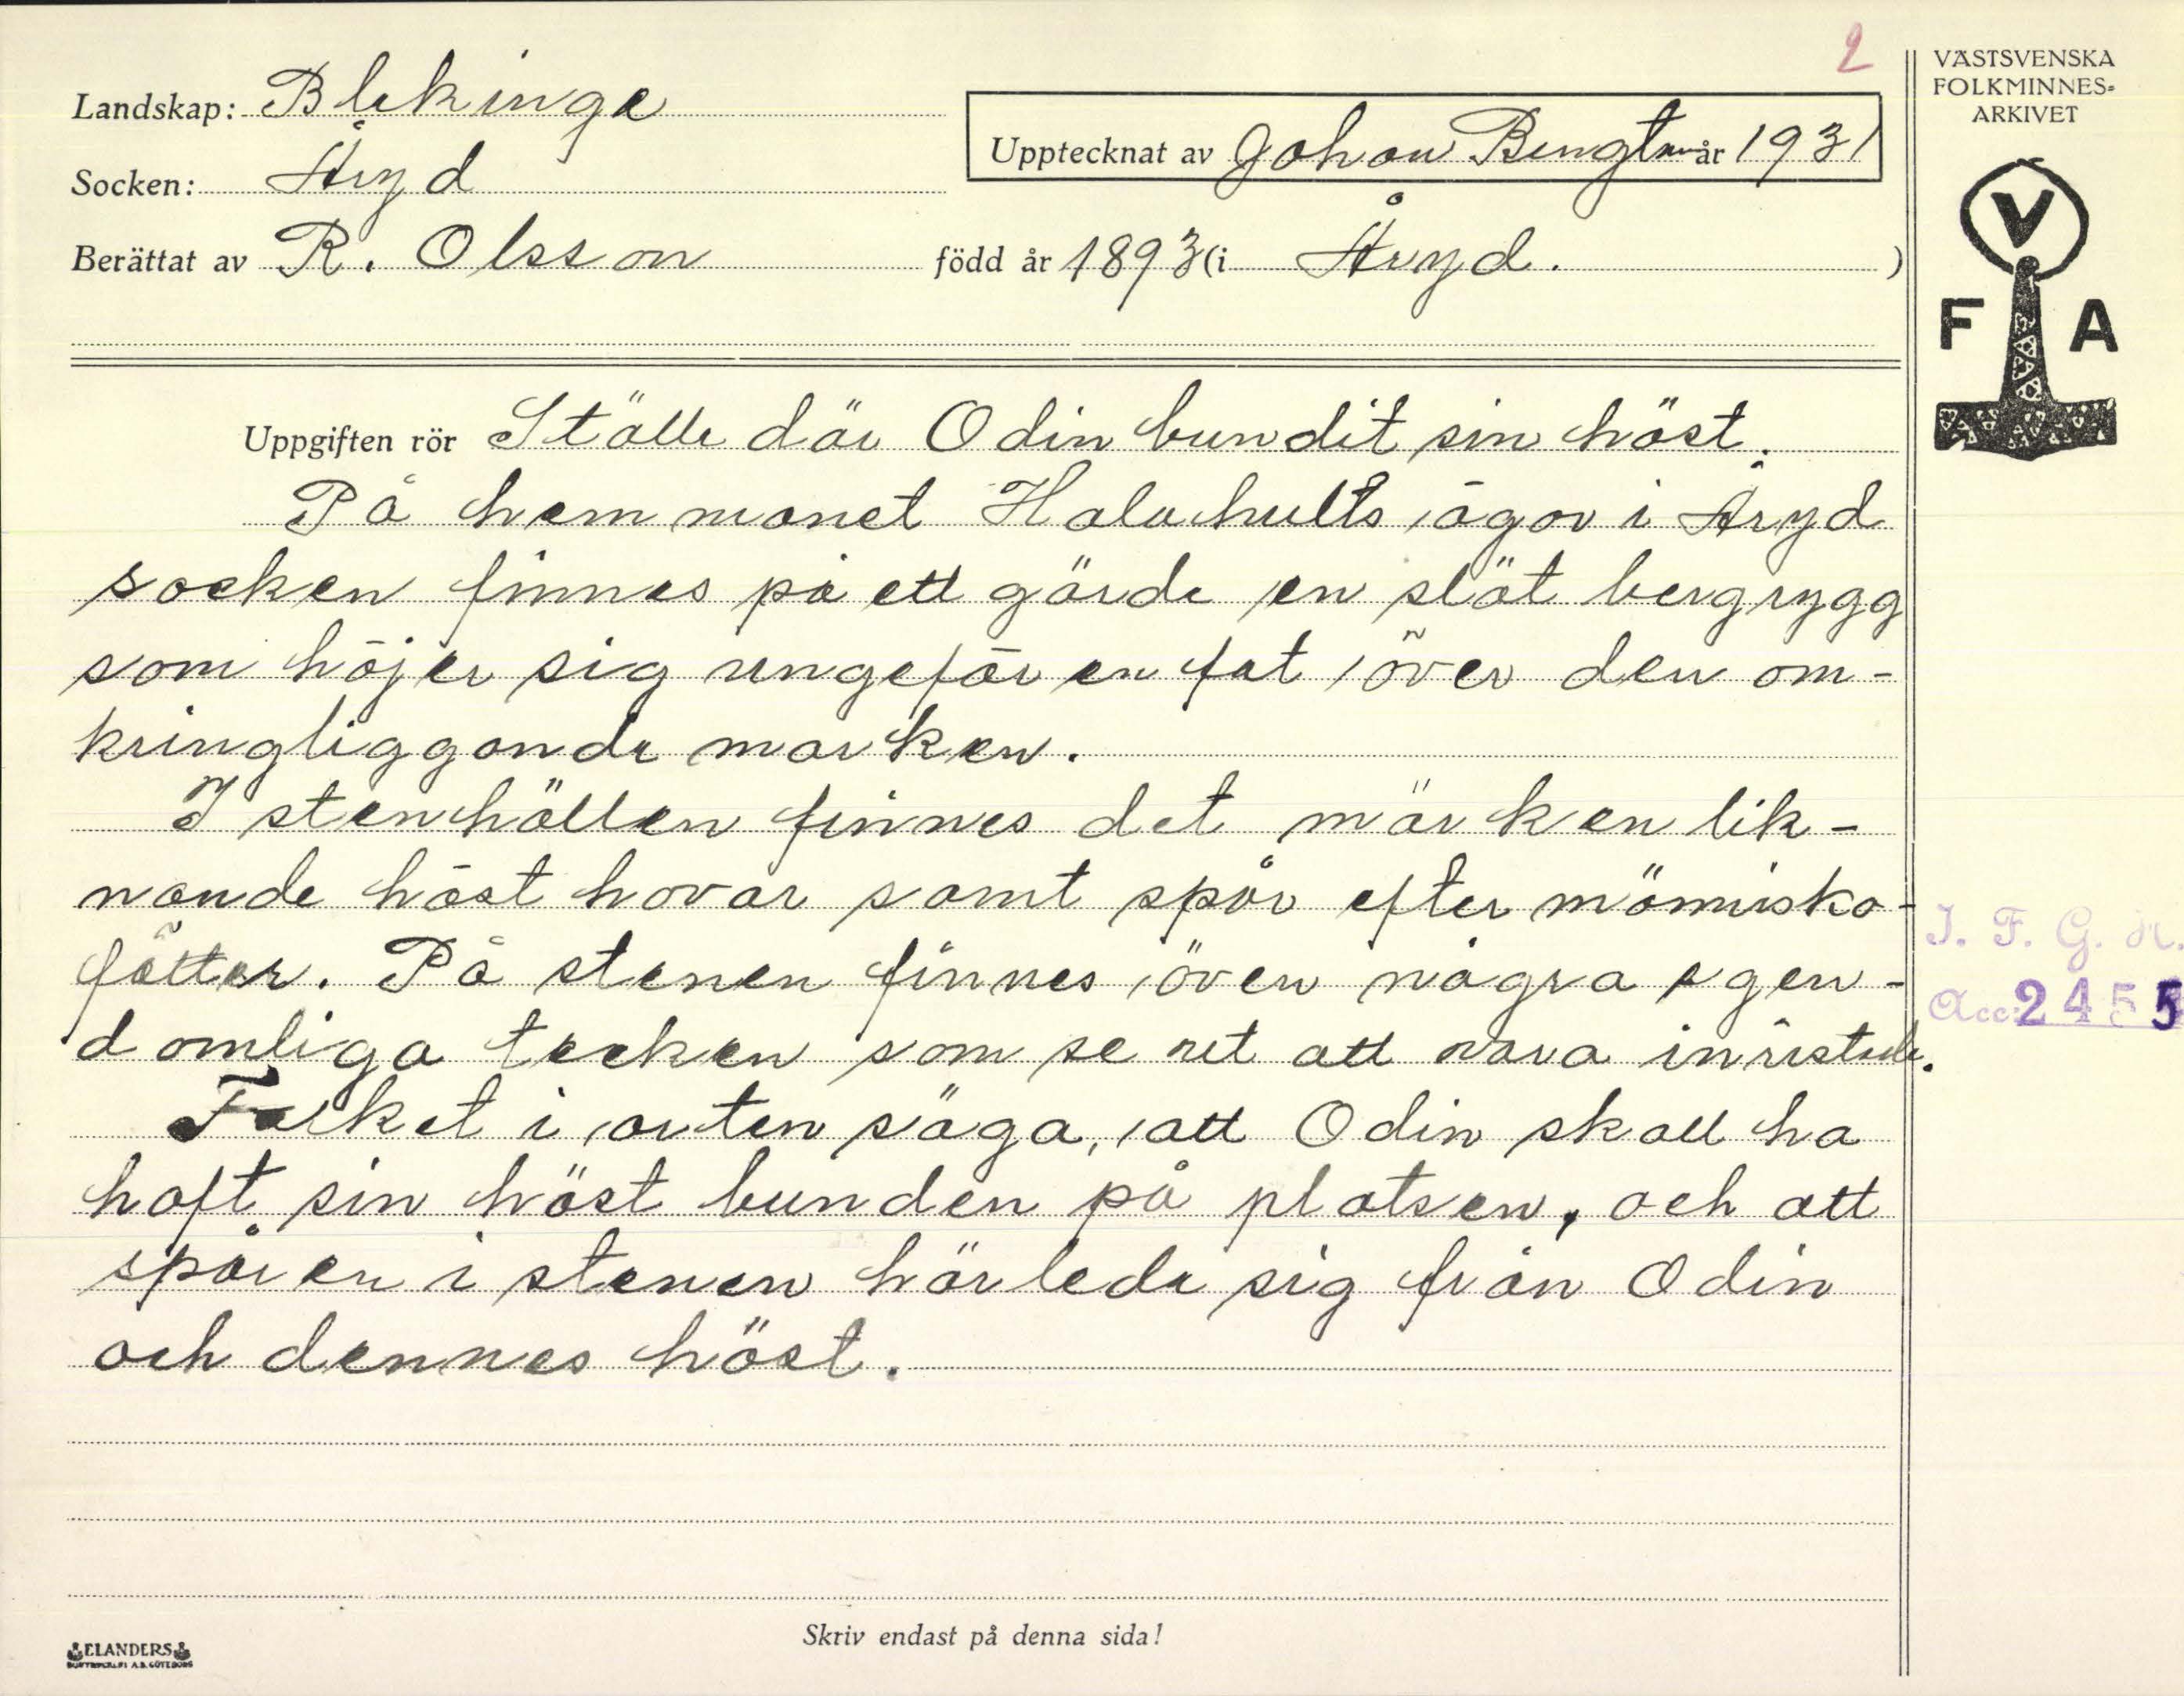 2
VÄSTSVENSKA
FOLKMINNES-
ARKIVET
Landskap: Blekinge
Upptecknat av Johan Bengtsson år 1931
Socken: Åryd
Berättat av R. Olsson född år 1893 (i Åryd. )
V
F A
Uppgiften rör Ställe där Odin bundit sin häst.
På hemmanet Halahults ägor i Åryd
socken finnes på ett gärde en slät bergrygg
som höjer sig ungefär en fot över den om-
kringliggande marken.
I stenhällen finnes det märken lik-
nande häst hovar samt spår efter människo-
fötter. På stenen finnes även några egen-
domliga tecken som se ut att vara inristade.
Folket i orten säga, att Odin skall ha
haft sin häst bunden på platsen, och att
spåren i stenen härleda sig från Odin
och dennes häst.
I. F. G. H.
Acc: 2455
Skriv endast på denna sida!
ELANDERS
BOKTRYCKERI A.B. GÖTEBORG